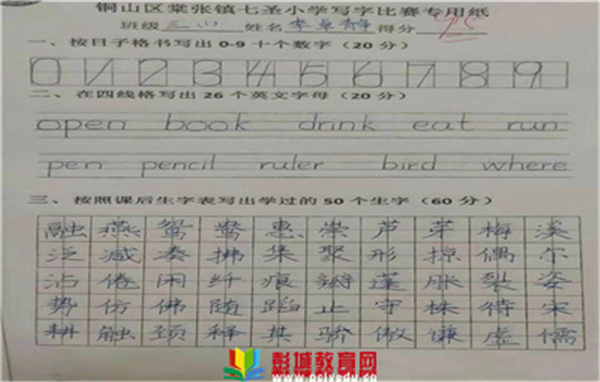 铜山区棠张镇七圣小学写字比赛专用纸
班级 三 姓名 李卓静 得分 95
一、按日子格书写出0-9十个数字（20分）
0 1 2 3 4 5 6 7 8 9
二、在四线格写出26个英文字母（20分）
open book drink eat run
pen pencil ruler bird where
三、按照课后生字表写出学过的50个生字（60分）
融 燕 鸳 鸯 惠 崇 芦 芽 梅 溪
泛 减 凑 拂 集 聚 形 掠 偶 尔
沾 倦 闲 纤 痕 瓣 蓬 胀 裂 姿
势 仿 佛 随 蹈 止 守 株 待 宋
耕 触 颈 释 其 骄 傲 谦 虚 懦
彭城教育网